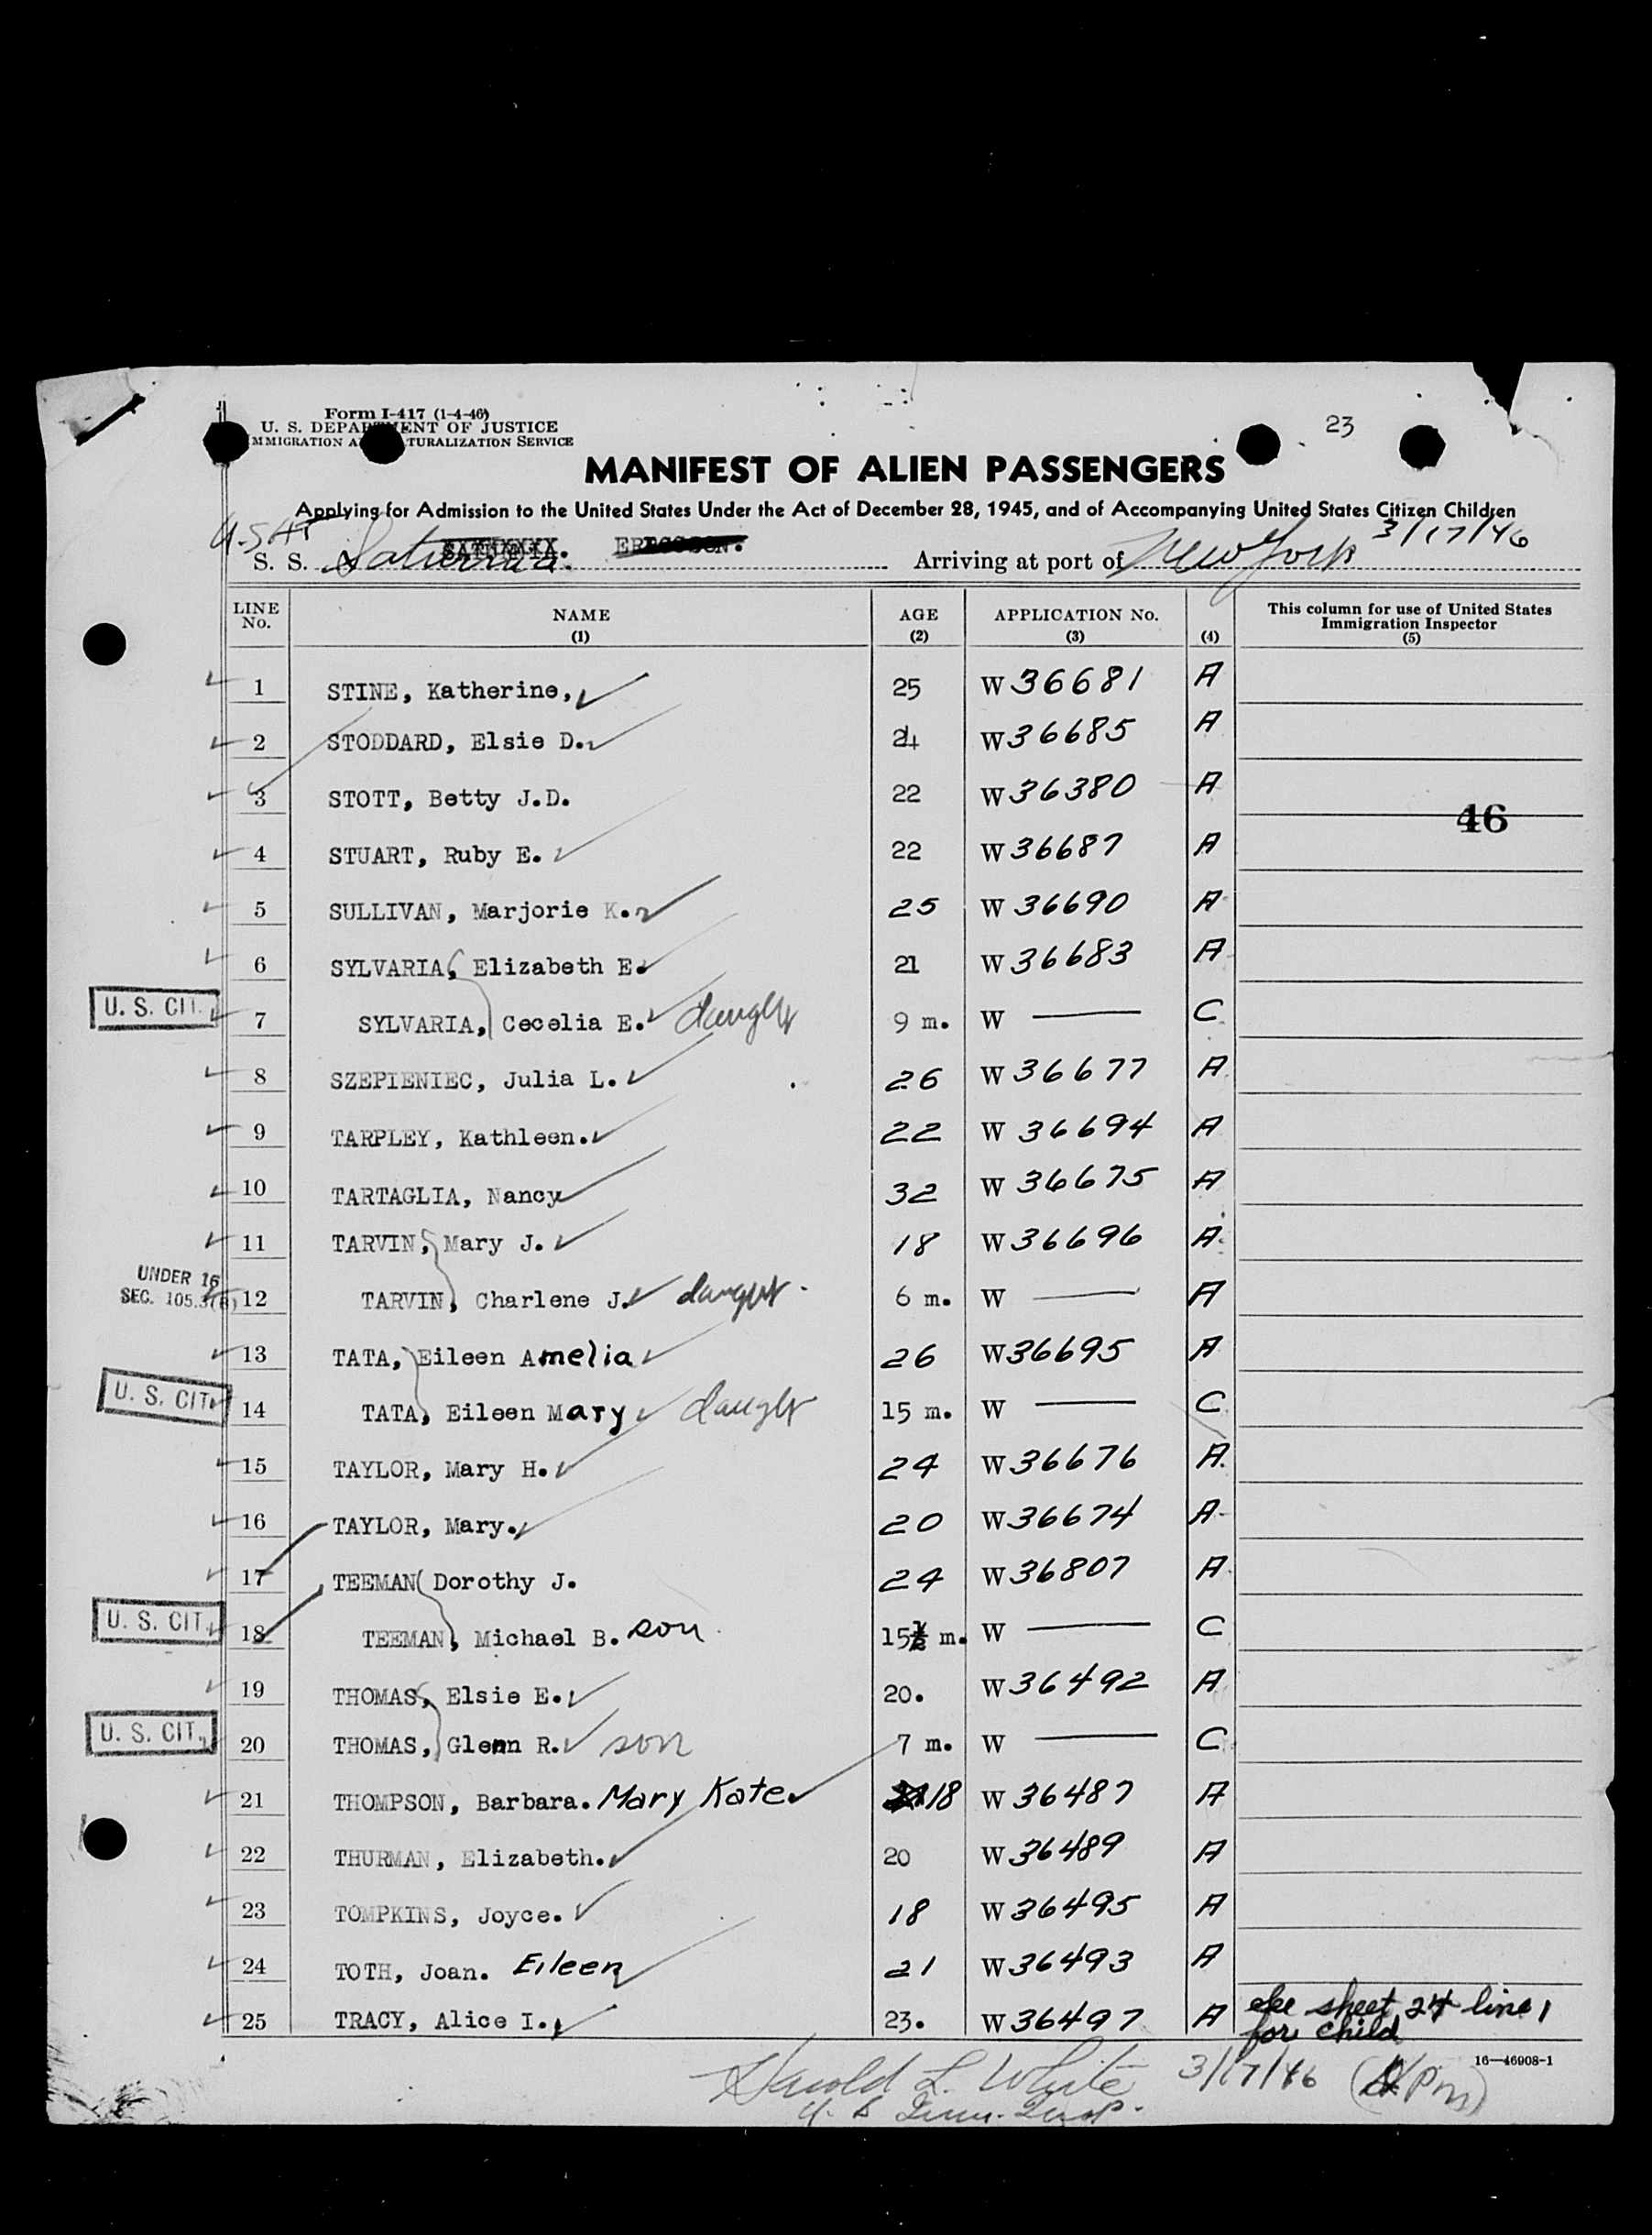 Form I-417 (1-4-46)
U. S. DEPARTMENT OF JUSTICE
IMMIGRATION AND NATURALIZATION SERVICE
23
MANIFEST OF ALIEN PASSENGERS
Applying for Admission to the United States Under the Act of December 28, 1945, and of Accompanying United States Citizen Children
U.S.A.T
S. S. Saturnia. Arriving at port of New York 3/17/46
LINE No. NAME (1) AGE (2) APPLICATION No. (3) (4) This column for use of United States Immigration Inspector (5)
1 STINE, Katherine, 25 W 36681 A
2 STODDARD, Elsie D. 24 W 36685 A
3 STOTT, Betty J.D. 22 W 36380 A
46
4 STUART, Ruby E. 22 W 36687 A
5 SULLIVAN, Marjorie K. 25 W 36690 A
6 SYLVARIA, Elizabeth E. 21 W 36683 A
U. S. CIT. 7 SYLVARIA, Cecelia E. daughtr 9 m. W — C
8 SZEPIENIEC, Julia L. 26 W 36677 A
9 TARPLEY, Kathleen. 22 W 36694 A
10 TARTAGLIA, Nancy 32 W 36675 A
11 TARVIN, Mary J. 18 W 36696 A
UNDER 16
SEC. 105.3(B) 12 TARVIN, Charlene J. daughtr. 6 m. W — A
13 TATA, Eileen Amelia 26 W 36695 A
U. S. CIT. 14 TATA, Eileen Mary daughtr 15 m. W — C
15 TAYLOR, Mary H. 24 W 36676 A.
16 TAYLOR, Mary. 20 W 36674 A
17 TEEMAN Dorothy J. 24 W 36807 A
U. S. CIT. 18 TEEMAN, Michael B. son 15½ m. W — C
19 THOMAS, Elsie E. 20. W 36492 A
U. S. CIT. 20 THOMAS, Glenn R. son 7 m. W — C
21 THOMPSON, Barbara. Mary Kate 18 W 36487 A
22 THURMAN, Elizabeth. 20 W 36489 A
23 TOMPKINS, Joyce. 18 W 36495 A
24 TOTH, Joan. Eileen 21 W 36493 A
25 TRACY, Alice I. 23. W 36497 A see sheet 24 line 1
for child
16—46908-1
Harold L. White 3/17/46 (Pm)
U. S Imm. Insp.